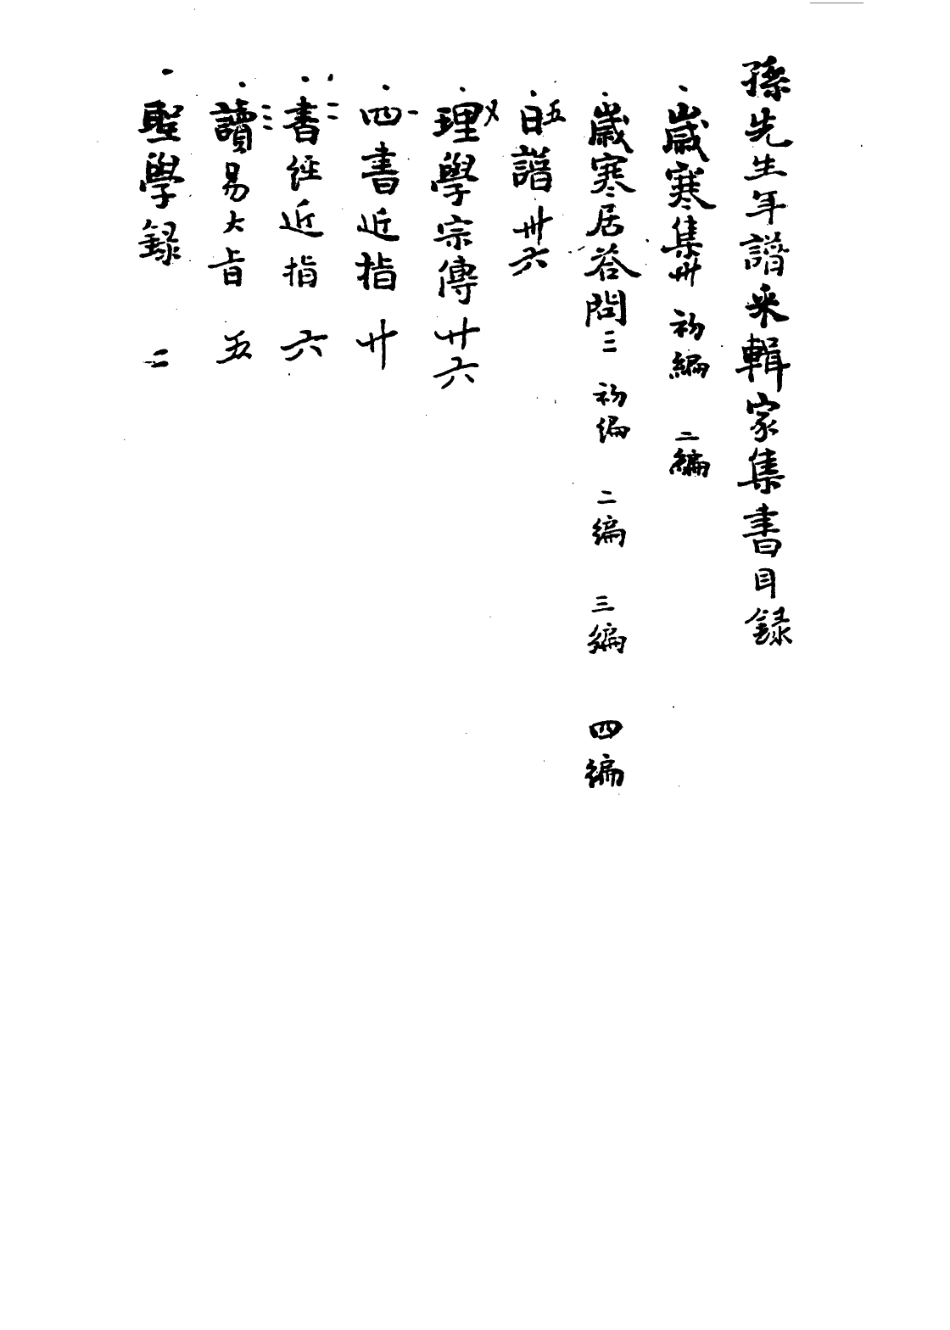 孫先生年譜采輯家集書目録
歲寒集卅 初編 二編
歲寒居答問三 初編 二編 三編 四編
日譜卅六 五
理學宗傳廿六
四書近指廿 一
書經近指 六 二
讀易大旨 五 三
聖學録 二